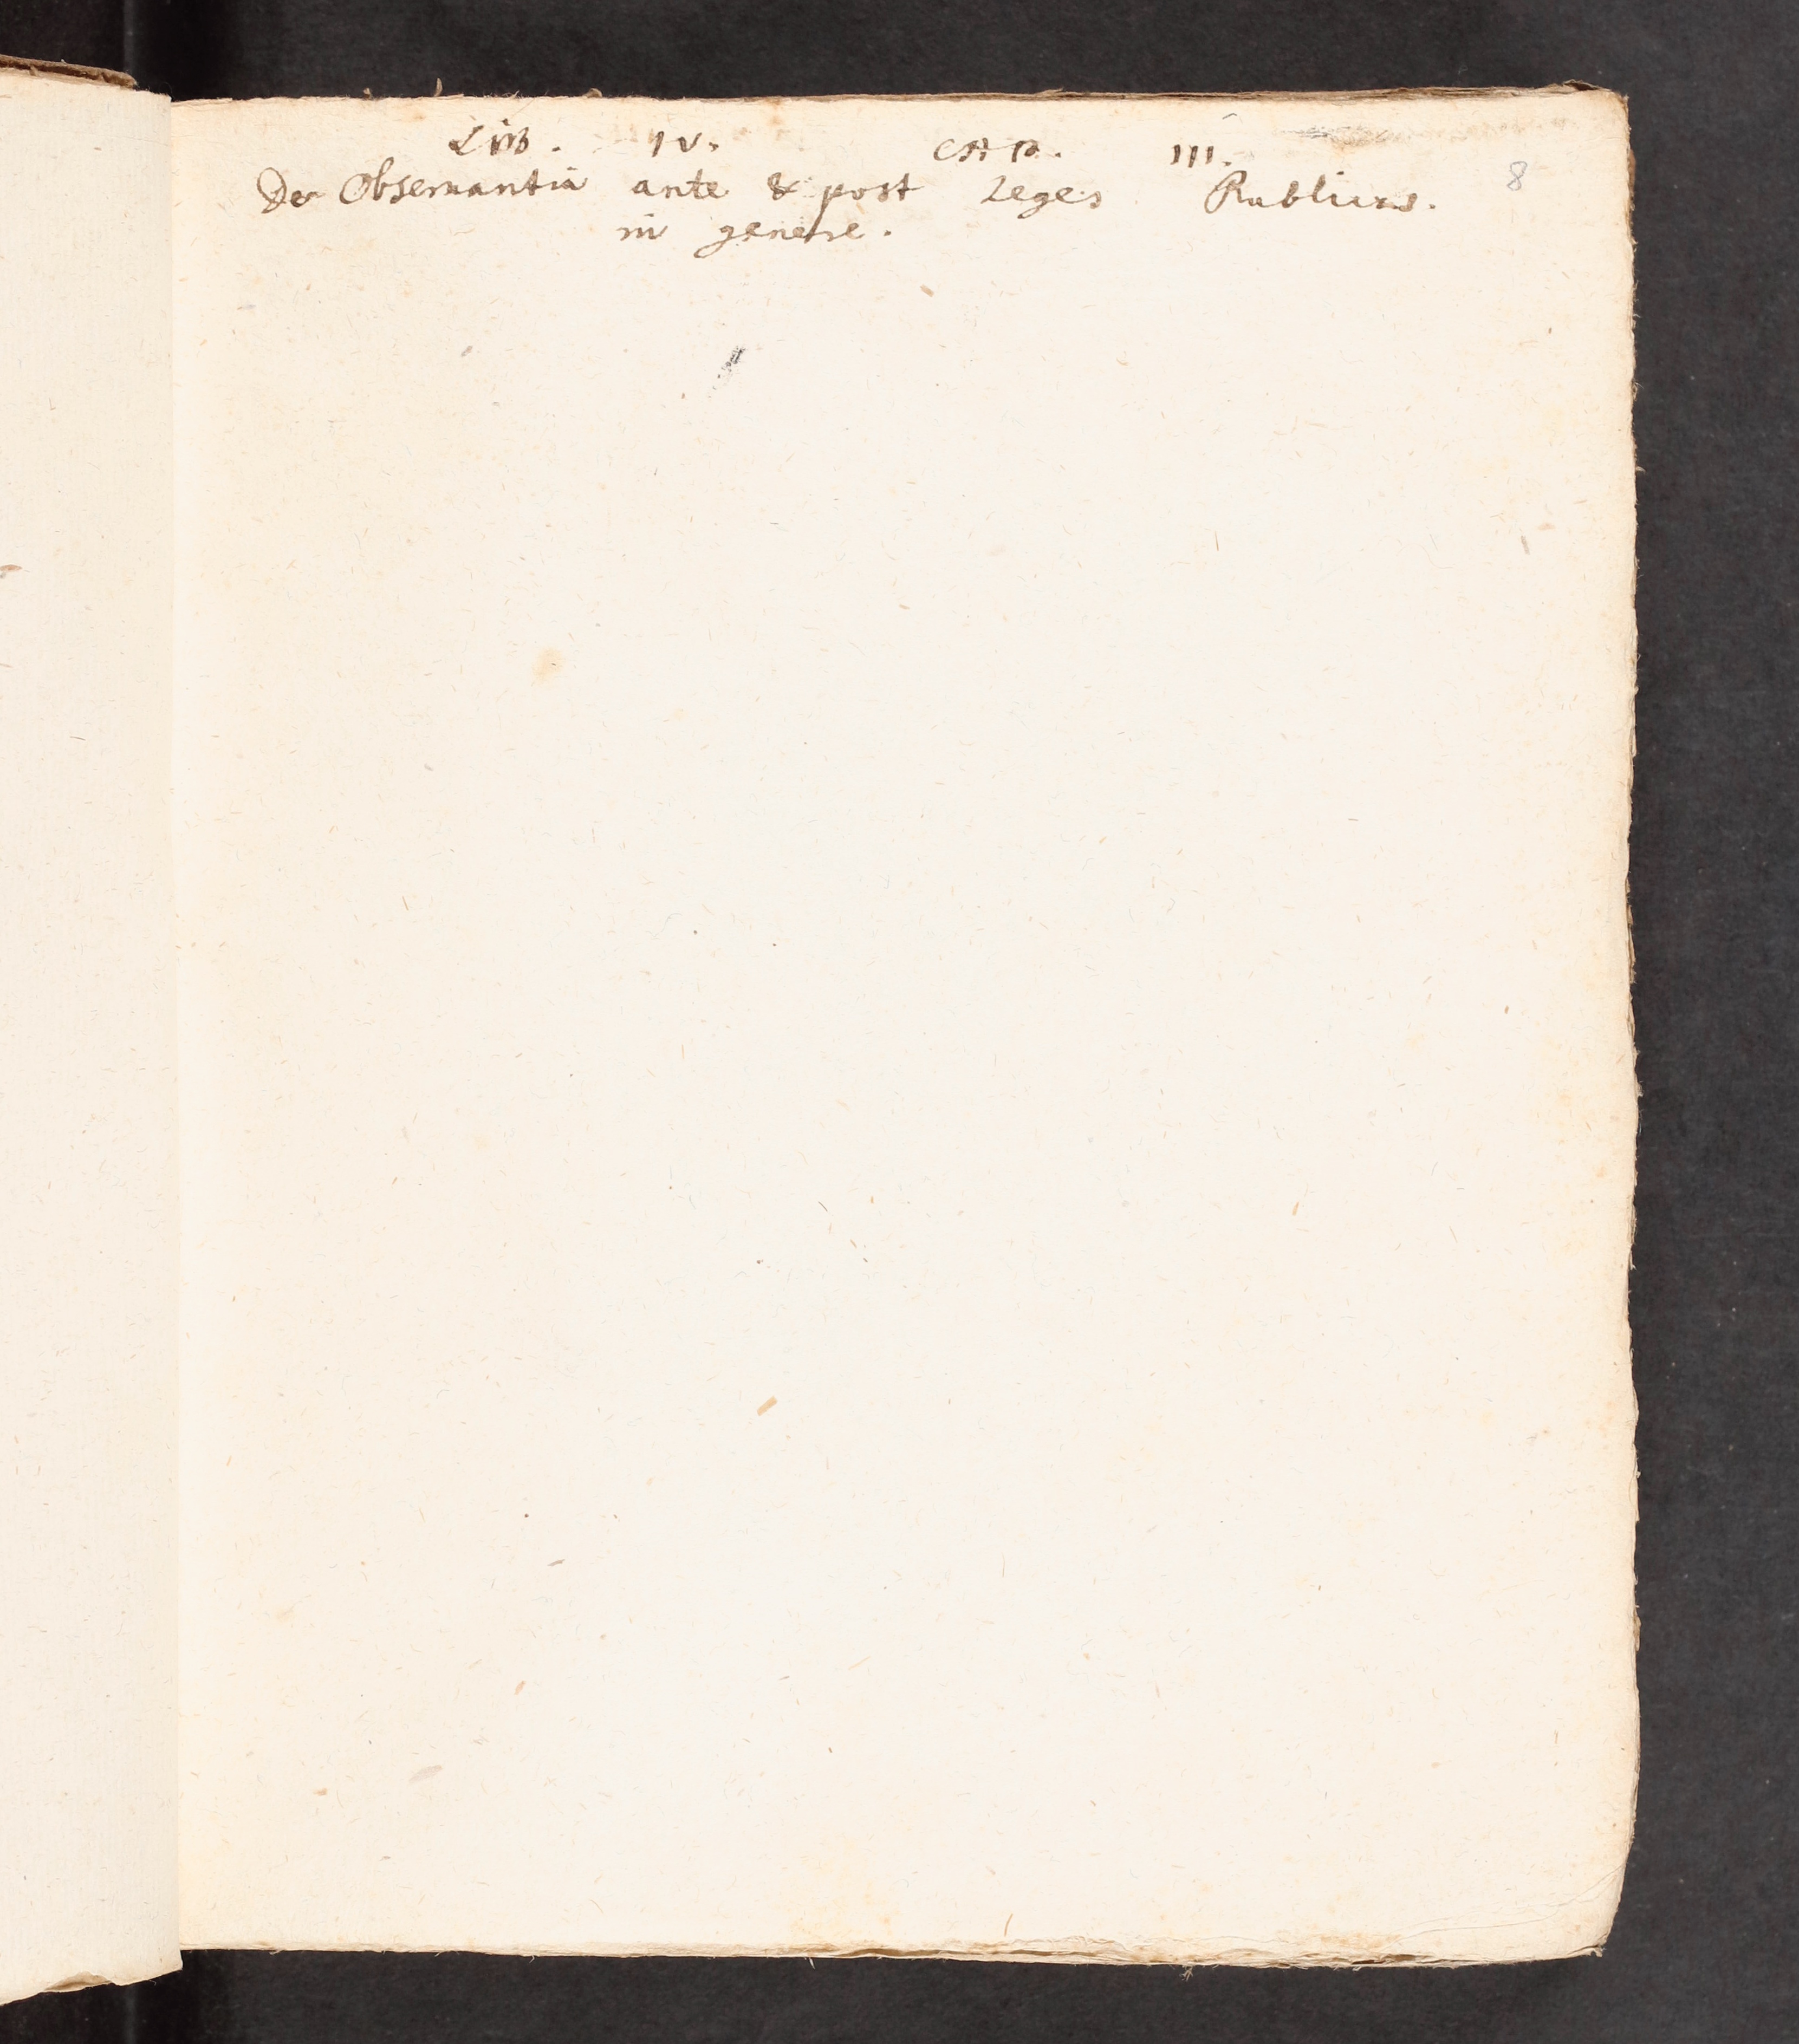 Lib. IV. CAP. III.
De Obseruantia ante & post Leges Publicas. 8
in genere.